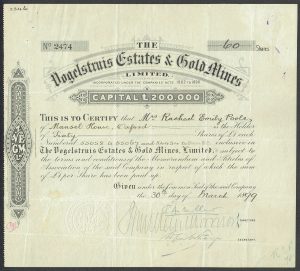 Nº 2474
60 Shares
THE
Vogelstruis Estates & Gold Mines
LIMITED.
INCORPORATED UNDER THE COMPANIES ACTS 1862 TO 1890
CAPITAL £200.000
THIS IS TO CERTIFY that Mrs Rachael Emily
of Mansel House, Oxford is the Holder
of Sixty Shares of £1 each
Numbered inclusive in
The Vogelstruis Estates & Gold Mines, Limited, subject to
the terms and conditions of the Memorandum and Articles of
Association of the said Company in respect of which the sum
of £1 per Share has been paid up.
Given under the Common Seal of the said Company
the 30th day of March 1899
DIRECTORS
SECRETARY